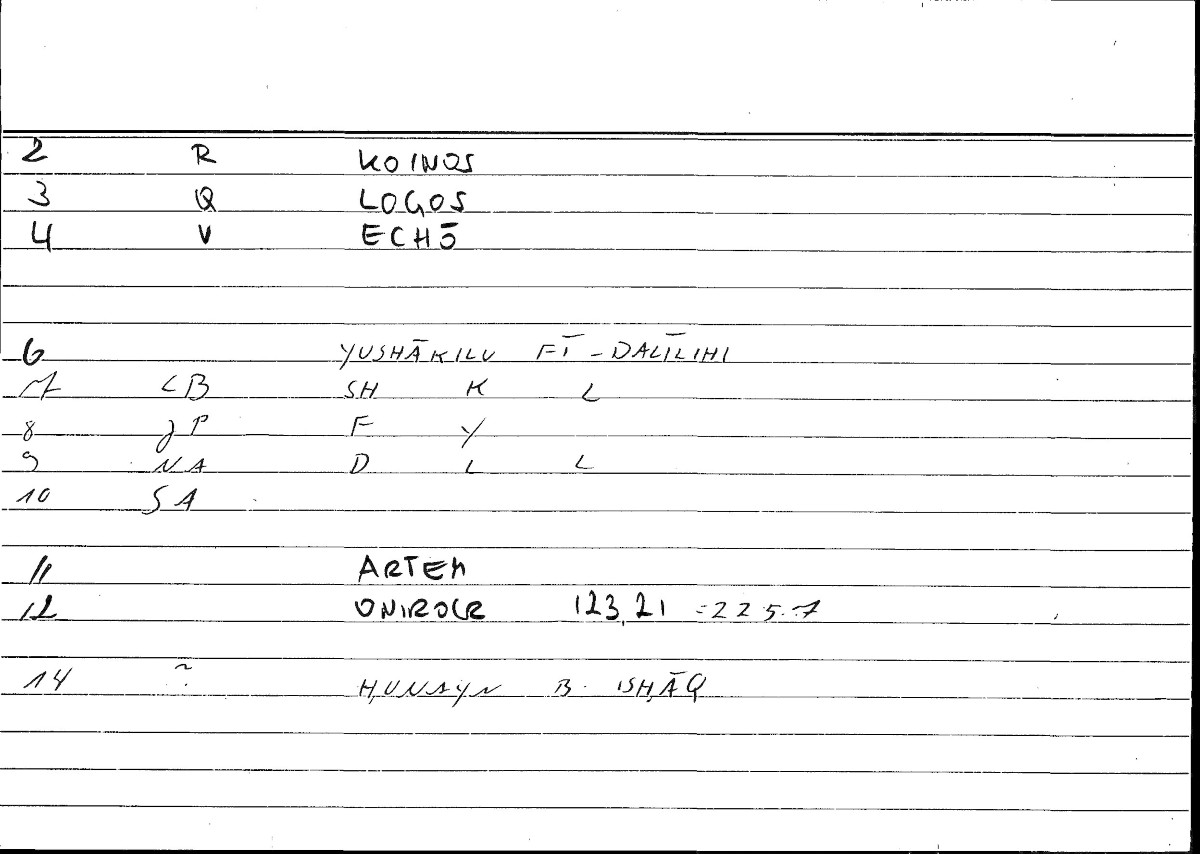 2 R KOINOS
3 Q LOGOS
4 V ECHŌ
6 YUSHĀKILU FĪ-DALĪLIHI
7 <B SH K L
8 JP F Y
9 NA D L L
10 SA
11 ARTEM
12 ONIROCR 123,21 =225.7
14 ~ ḤUNAYN B. ISḤĀQ